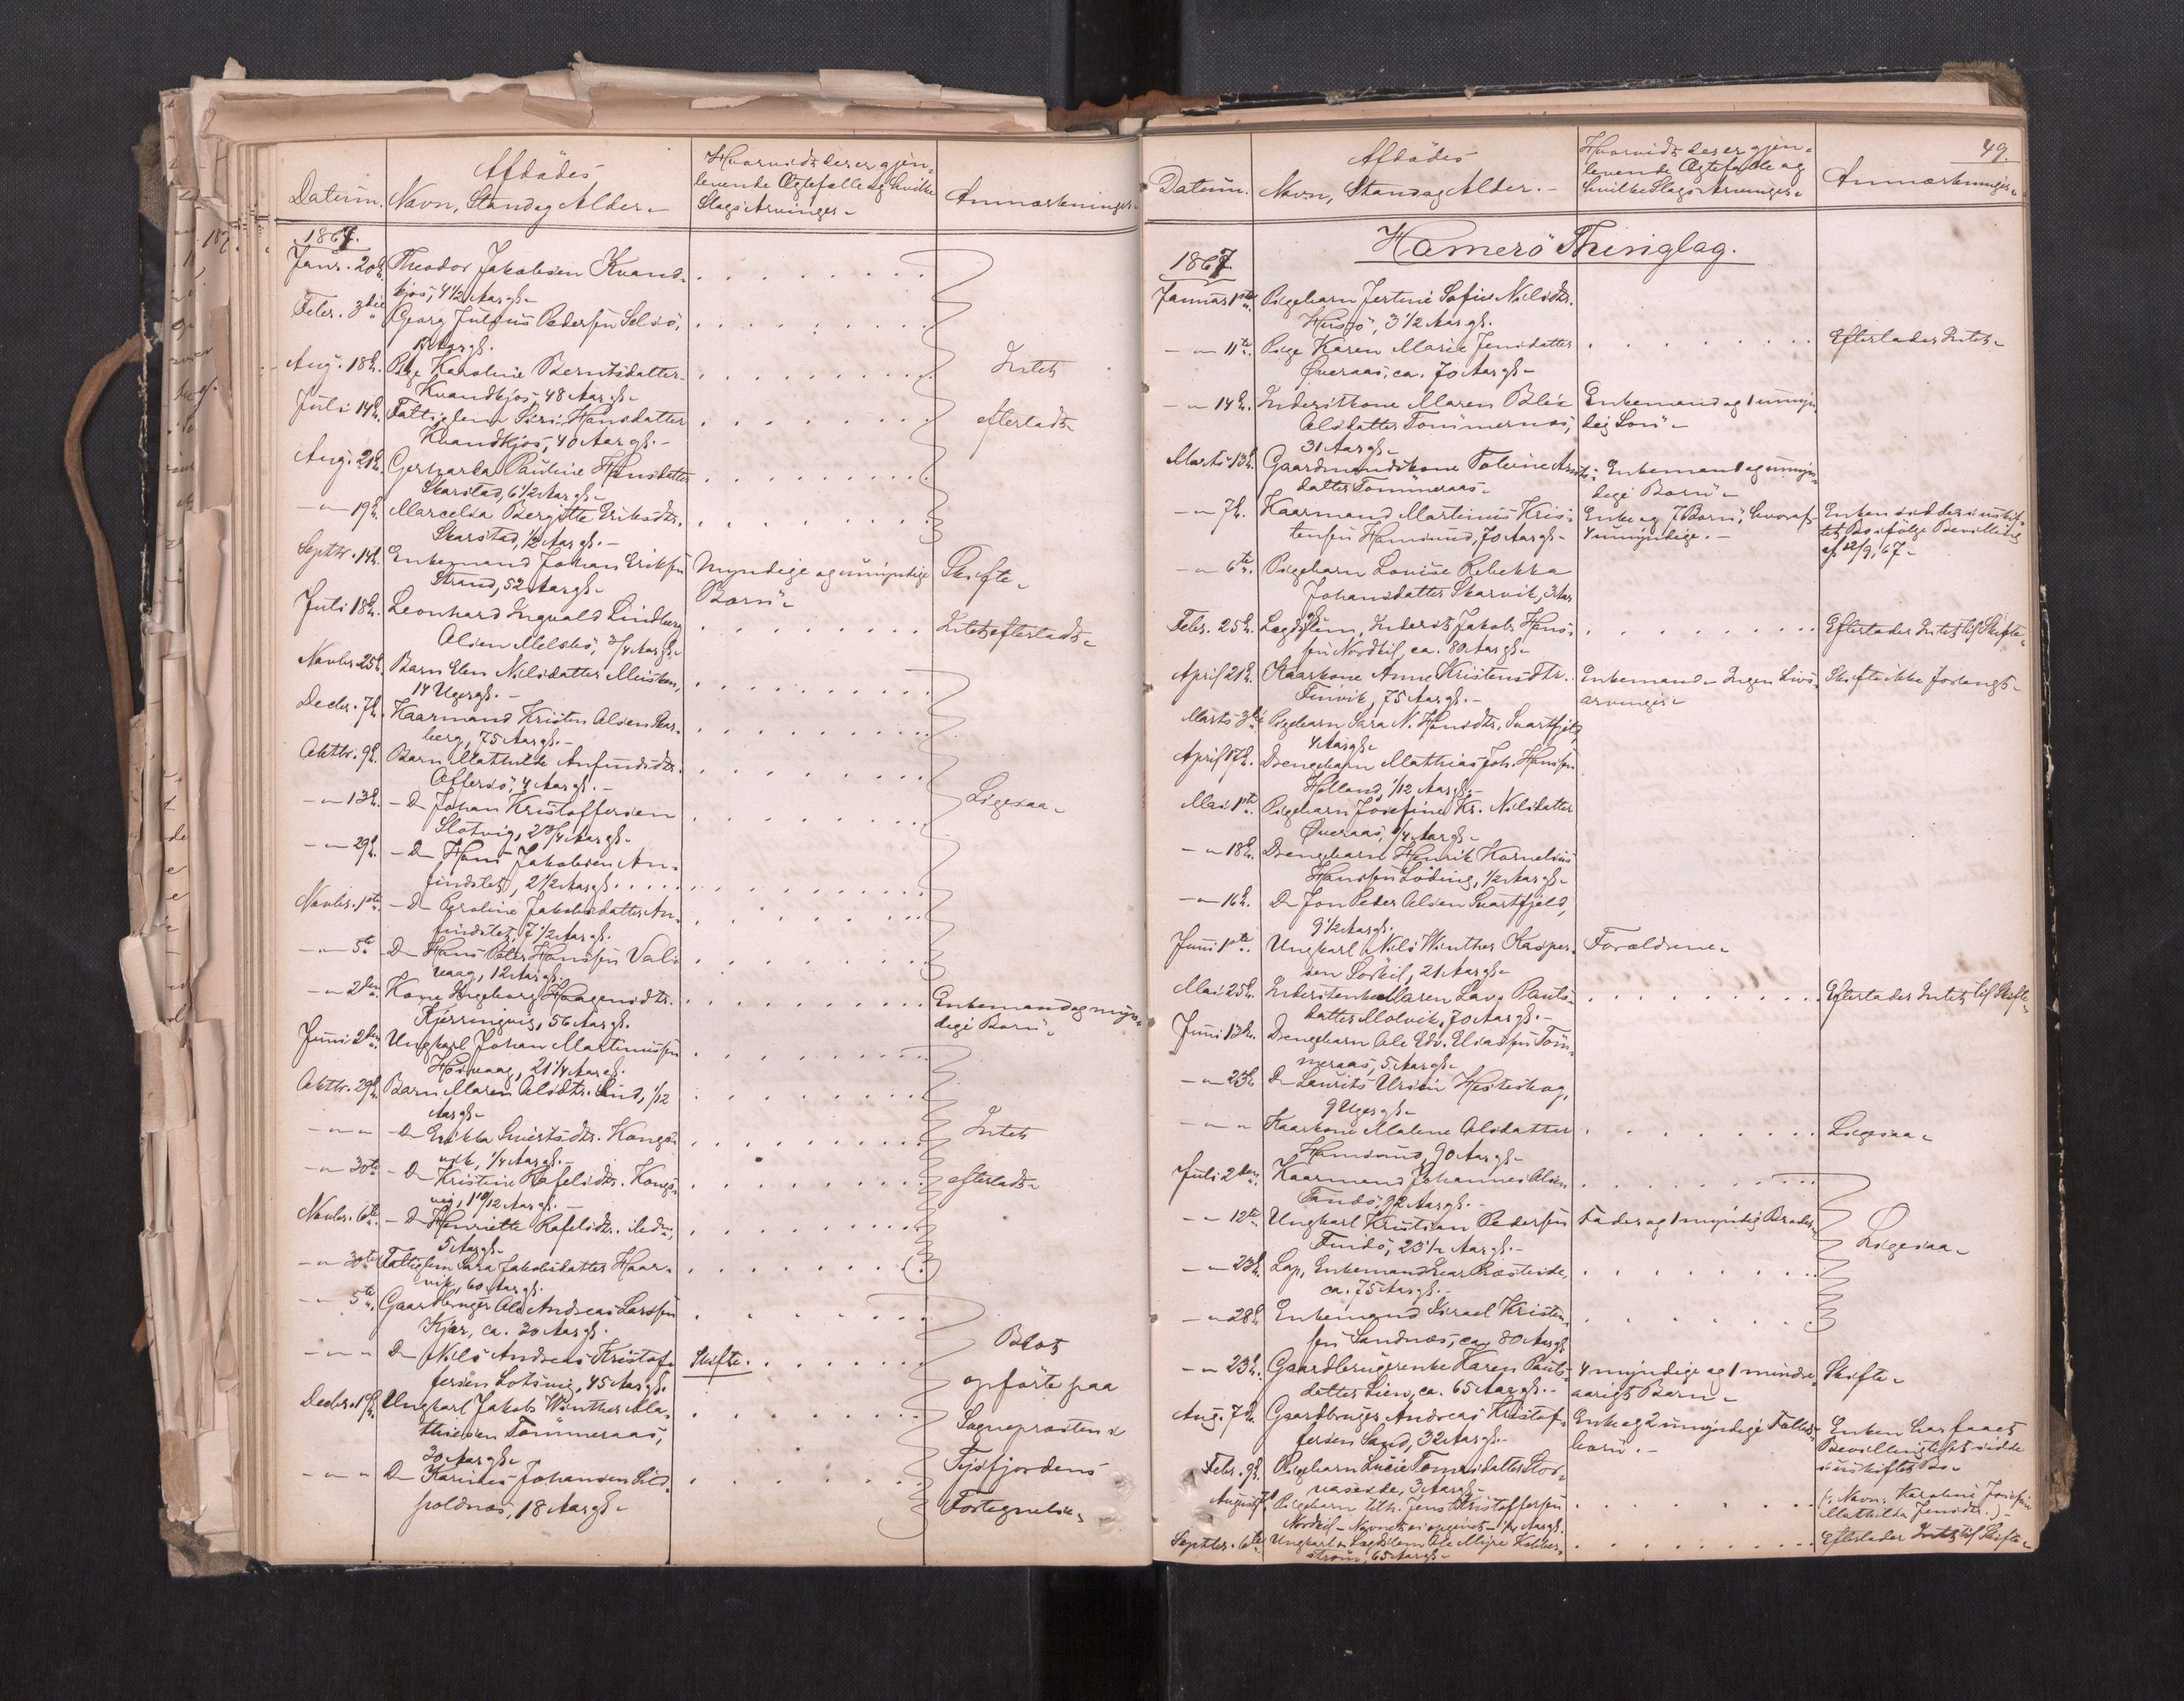 Afdødes
Datum. Navn, Stand og Alder.
Hvorvidt der er gjen-
levende Ægtefælle og hvilke
Slags Arvinger.
Anmærkninger.
1867.
Janr. 20de Theodor Jakobsen Kvand-
kjos, 4 1/2 Aar gl.
Febr. 3die Georg Julius Pedersen Selsö,
Aar gl.
Aug. 18de Pige Karoline Berntsdatter
Kvandkjos, 48 Aar gl.
Intet
Juli 14de Fattiglem Siri Hansdatter
Kvandkjos, 40 Aar gl.
efterladt
Aug. 21de Gerharda Pauline Hansdatter
Skarstad, 6 1/2 Aar gl.
- " 19de Marcelia Bergitte Eriksdtr.
Skarstad, 1/2 Aar gl.
Septbr. 14de Enkemand Johan Eriksen
Strand, 52 Aar gl.
Myndige og umyndige
Børn
Skifte
Juli 18de Leonhard Ingvald Lindberg
Olsen Melsbö, 3/4 Aar gl.
Intet efterladt
Novbr. 25de Barn Elen Nilsdatter
14 Uger gl.
Decbr. 7de Kaarmand Kristen Olsen Skar-
berg, 75 Aar gl.
Oktbr. 9de Barn Mathilde Anfindsdtr.
Offersö, 4 Aar gl.
- " 13de - Do Johan Kristoffersen
Slotvig, 2 3/4 Aar gl.
Ligesaa
- " 29de - Do Hans Jakobsen An-
findslet, 2 1/2 Aar gl.
Novbr. 1ste - Do Karoline Jakobsdatter An-
findslet, 7 1/2 Aar gl.
- " 5te Do Hans Peter Hansen Vals-
vaag, 12 Aar gl.
- " 2den Kone Ingeborg Haagensdtr.
Kjerringvig, 56 Aar gl.
Enkemand og myn-
dige Børn
Juni 2den Ungkarl Johan Martinussen
Haukvaag, 21 1/4 Aar gl.
Oktbr. 29de Barn Maren Olsdtr. Sund, 1/12
Aar gl.
- " " - Do Erikka Sivertsdtr. Kongs-
vik, 1/4 Aar gl.
Intet
- " 30te - Do Kristine Rafelsdtr. Kongs-
vig, 1 10/12 Aar gl.
efterladt
Novbr. 6te - Do Henriette Rafelsdtr. ibedm,
5 Aar gl.
- " 30te Fattiglem Sara Jakobsdatter Haar-
vik, 60 Aar gl.
- " 5te Gaardbruger Ole Andreas Larsen
Kjær, ca. 30 Aar gl.
- " " Do Nils Andreas Kristof-
fersen Lotsvig, 45 Aar gl.
Skifte.
Blot
opförte paa
Decbr. Ungkarl Jakob Winther Ma-
thiesen Tömmeraas,
30 Aar gl.
Sognepræsten i
- " " Do Karinus Johansen
poldnæs, 18 Aar gl.
Tysfjordens
Fortegnelse
49.
Afdødes
Datum. Navn, Stand og Alder.
Hvorvidt der er gjen-
levende Ægtefælle og
hvilke Slags Arvinger.
Anmærkninger.
Hamerö Thinglag.
1867
Januar 1ste Pigebarn Jertine Sofie Nilsdtr.
3 1/2 Aar gl.
- " 11te Pige Karen Marie Jensdatter
Överaas, ca. 70 Aar gl.
Efterlader Intet
- " 14de Inderstkone Maren Blix
Olsdatter Tömmernæs,
31 Aar gl.
Enkemand og 1 umyn-
dig Sön
Marts 13de Gaardmandskone Tolline Arnts-
datter Tömmeraas
Enkemand og umyn-
dige Børn
- " 7de Kaarmand Martinus Kris-
tensen Hamsund, 70 Aar gl.
Enke og 7 Børn, hvoraf
4 umyndige.
Enken sidder i uskif-
tet Bo ifölge Bevilling
af 12/9. 67
- " 6te Pigebarn Lovise Rebekka
Johansdatter Skarvik, 3 Aar
gl.
Febr. 25de Lægdslem, Inderst Jakob Han-
sen Nordkil, ca. 80 Aar gl.
Efterlader Intet til Skifte
April 21de Kaarkone Anne Kristensdtr.
Finvik, 75 Aar gl.
Enkemand. Ingen Livs-
arvinger
Skifte ikke forlangt
Marts 3die Pigebarn Sara N. Hansdtr. Svartfjeld,
4 Aar gl.
April 17de Drengebarn Mathias Joh. Hansen
Holland, 1/12 Aar gl.
Mai 1ste Pigebarn Josefine Kr. Nilsdatter
Överaas, 1/4 Aar gl.
- " 18de Drengebarn Henrik Kornelius
Hansen Löding, 1/2 Aar gl.
- " 16de Do Jon Peder Olsen Svartfjeld,
9 1/2 Aar gl.
Juni 1ste Ungkarl Nils Winther Kasper-
sen Sörkil, 21 Aar gl.
Forældrene
Mai 25de Inderstenke Maren Lava Pauls-
datter Molvik, 70 Aar gl.
Efterlader Intet til Skifte
Juni 13de Drengebarn Ole Edv. Eliassen Töm-
meraas, 5 Aar gl.
- " 23de Do Laurits Ursin Hesteskog,
9 Uger gl.
- " " Kaarkone Malene Olsdatter
Hamsund, 90 Aar gl.
Ligesaa
Juli 2den Kaarmand Johannes Olsen
92 Aar gl.
- " 12te Ungkarl Kristian Pedersen
Findö, 23 1/2 Aar gl.
Fader og 1 myndig Broder
Ligesaa
- " 23de Lap, Enkemand Præsteide,
ca. 75 Aar gl.
- " 28de Enkemand Israel Kristen-
sen Sandnæs, ca. 80 Aar gl.
- " 23de Gaardbrugerenke Karen Pauls-
datter Lien, ca. 65 Aar gl.
4 myndige og 1 mindre-
aarigt Barn
Skifte
Aug. 7de Gaardbruger Andreas Kristof-
fersen Sand, 32 Aar gl.
Enke og 2 umyndige Fælles-
børn.
Enken har faaet
Bevilling til at sidde
i uskiftet Bo
Febr. 9de Pigebarn Lucie Tomasdatter Stor-
næseide, 3 Aar gl.
August 7de Pigebarn tilh. Jens Kristoffersen
Nordkil - Navnet ei opgivet - 1/4 Aar gl.
(: Navn: Karoline Josefine
Mathilda Jensdtr. :)
Septbr. 6te Ungkarl Lægdslem Ole Mejer Kobber-
ström, 65 Aar gl.
Efterlader Intet til Skifte